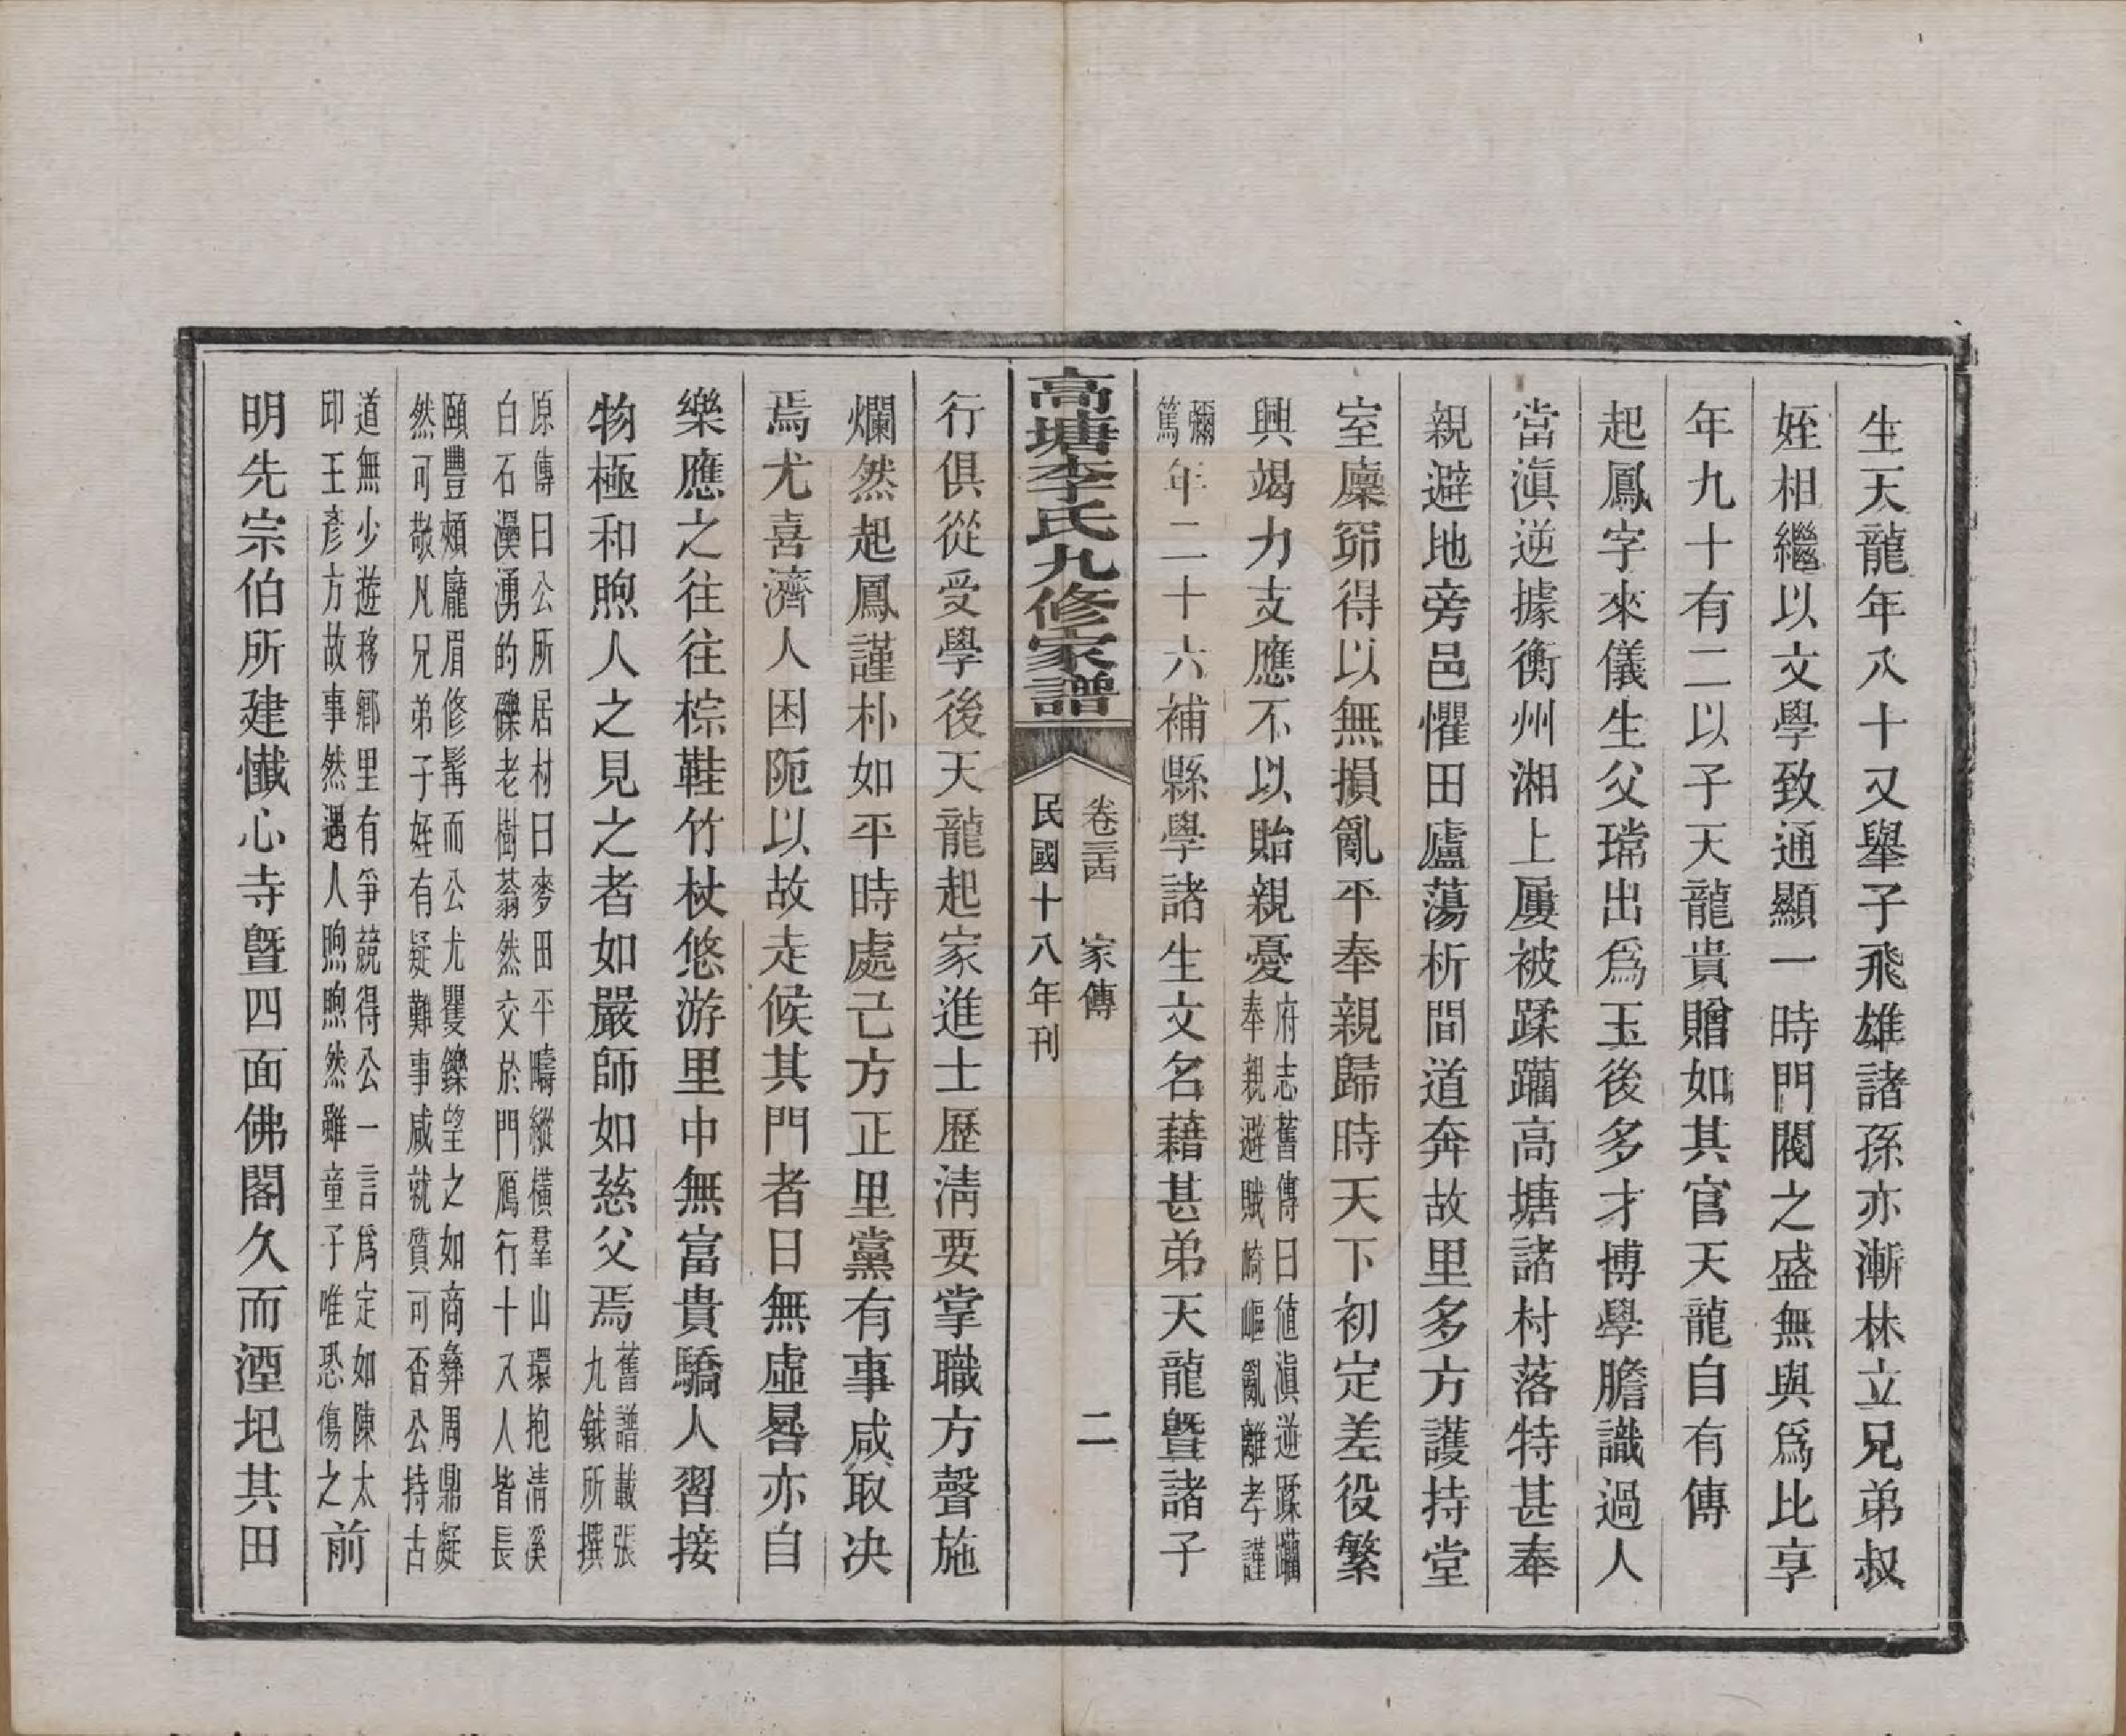 生天龍年八十又舉子飛雄諸孫亦漸林立兄弟叔
姪相繼以文學致通顯一時門閥之盛無與爲比享
年九十有二以子天龍貴贈如其官天龍自有傳
起鳳字來儀生父璫出爲玉後多才博學膽識過人
當滇逆據衡州湘上屢被蹂躪高塘諸村落特甚奉
親避地旁邑懼田廬蕩析間道奔故里多方護持堂
室廩窌得以無損亂平奉親歸時天下初定差役繁
興竭力支應不以貽親憂
府志舊傳曰値滇逆蹂躪
奉親避賊崎嶇亂離孝謹
彌
篤
年二十六補縣學諸生文名藉甚弟天龍曁諸子
高塘李氏九修家譜
卷三四 家傳 二
民國十八年刊
行俱從受學後天龍起家進士歷淸要掌職方聲施
爛然起鳳謹朴如平時處己方正里黨有事咸取决
焉尤喜濟人困阨以故走候其門者日無虛晷亦自
樂應之往往棕鞋竹杖悠游里中無富貴驕人習接
物極和煦人之見之者如嚴師如慈父焉
舊譜載張
九鉞所撰
原傳曰公所居村曰麥田平疇縱橫羣山環抱清溪
白石濙湧的礫老樹蓊然交於門鴈行十人人皆長
頤豐頰龐眉修髯而公尤矍鑠望之如商彝周鼎凝
然可敬凡兄弟子姪有疑難事咸就質可否公持古
道無少遊移鄕里有爭競得公一言爲定如陳太
邱王彥方故事然遇人煦煦然雖童子唯恐傷之
前
明先宗伯所建懴心寺曁四面佛閣久而湮圯其田